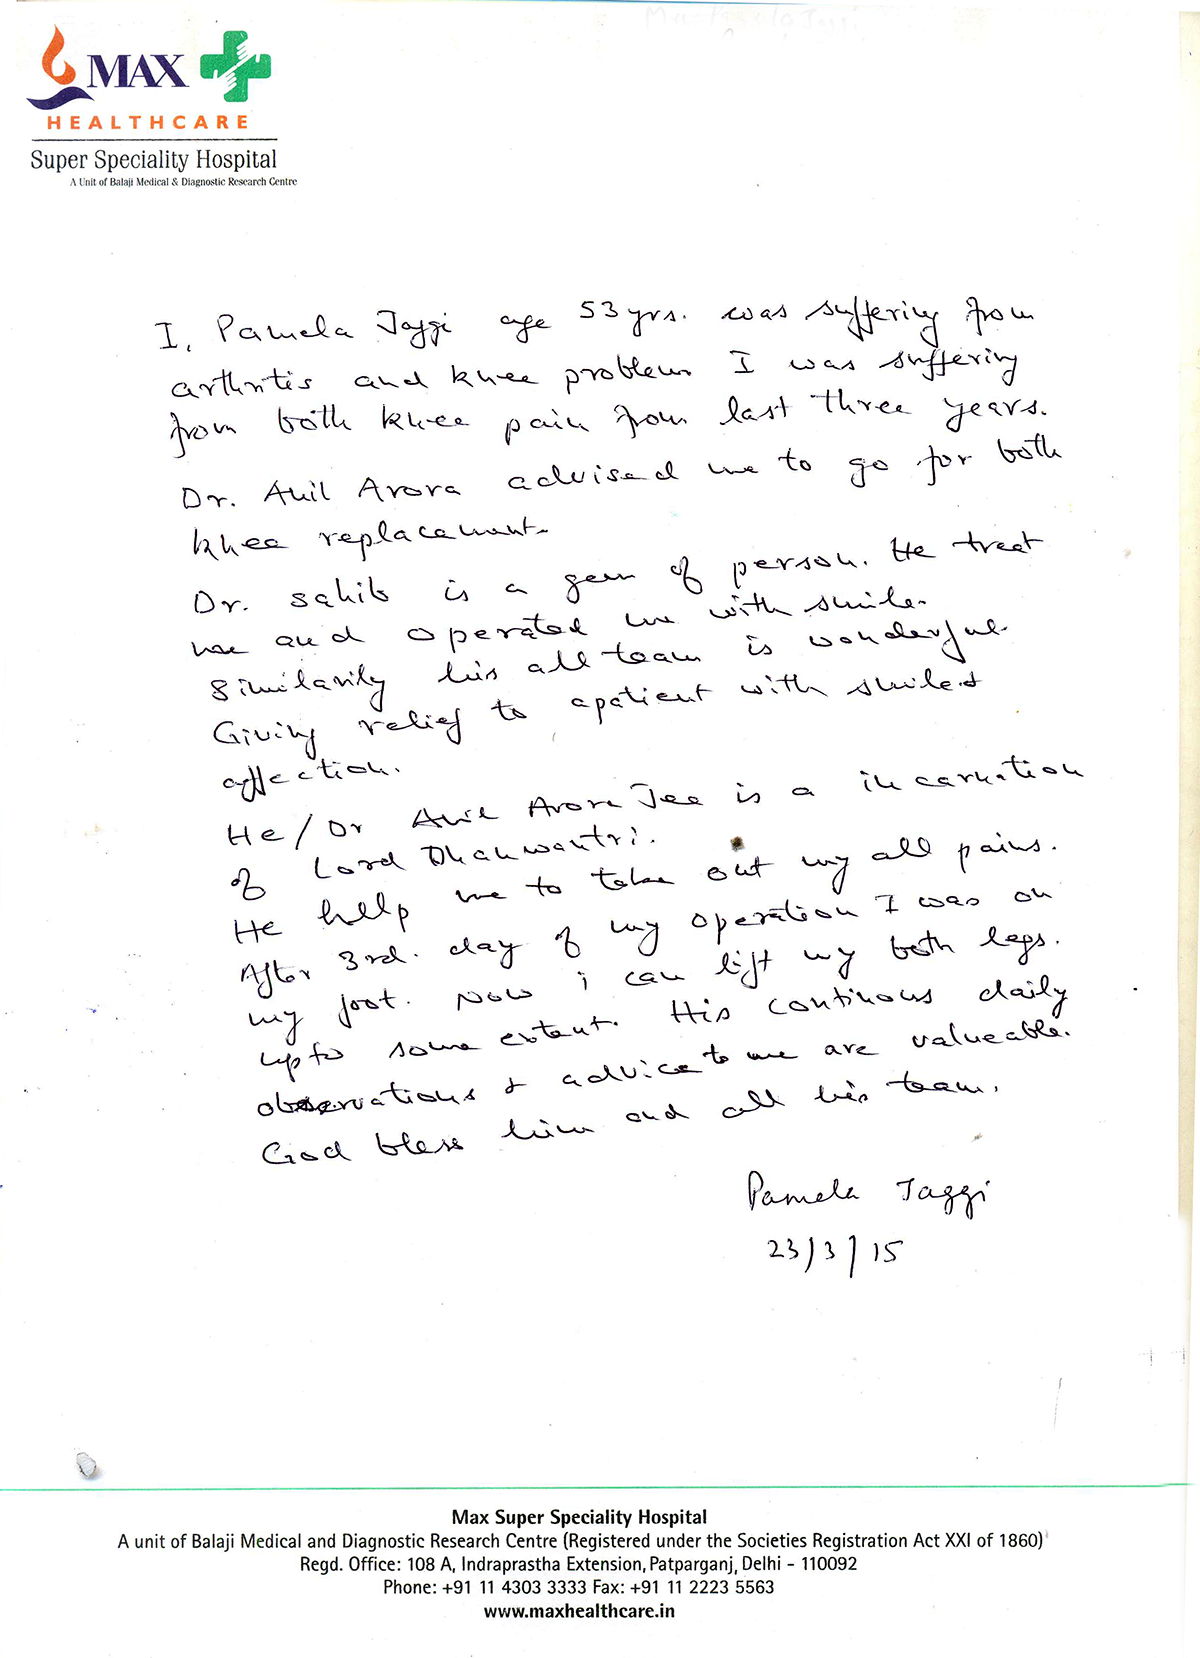 MAX
HEALTHCARE
Super Speciality Hospital
A Unit of Balaji Medical & Diagnostic Research Centre
I, Pamela Jaggi age 53 yrs. was suffering from
arthritis and knee problem I was suffering
from both knee pain from last three years.
Dr. Anil Arora advised me to go for both
knee replacement.
Dr. Sahib is a gem of person. He treat
me and operated me with smile.
Similarily his all team is wonderful.
Giving relief to a patient with smile &
affection.
He / Dr Anil Arora Jee is a incarnation
of Lord Dhanwantri.
He help me to take out my all pains.
After 3rd. day of my operation I was on
my foot. Now i can lift my both legs.
upto some extent. His continous daily
observations & advice to me are valueable.
God bless him and all his team.
Pamela Jaggi
23/3/15
Max Super Speciality Hospital
A unit of Balaji Medical and Diagnostic Research Centre (Registered under the Societies Registration Act XXI of 1860)
Regd. Office: 108 A, Indraprastha Extension, Patparganj, Delhi - 110092
Phone: +91 11 4303 3333 Fax: +91 11 2223 5563
www.maxhealthcare.in